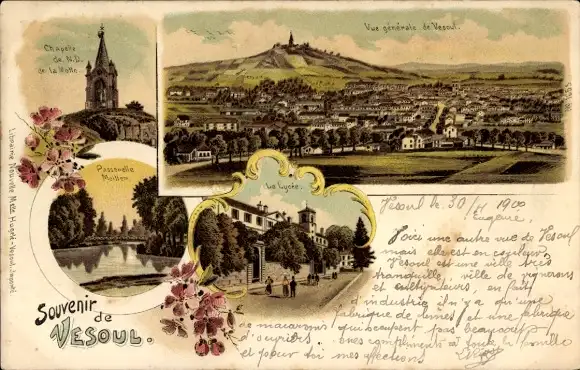 Chapelle
de N.D.
de la Motte.
Vue générale de Vesoul.
Passerelle
Maillen
Le Lycée.
Souvenir
de
VESOUL.
Librairie Nouvelle
Vesoul
Vesoul le 30/ 1900
Eugène,
Voici une autre vue de Vesoul
mais elle est en couleurs
Vesoul est une ville très
tranquille, ville de vignerons
et cultivateurs, en fait
d'industrie il n'y a qu'une
fabrique de limes et une fabrique
de macarons qui occupent pas beaucoup
d'ouvriers. mes compliments à toute la famille
et pour toi mes affections